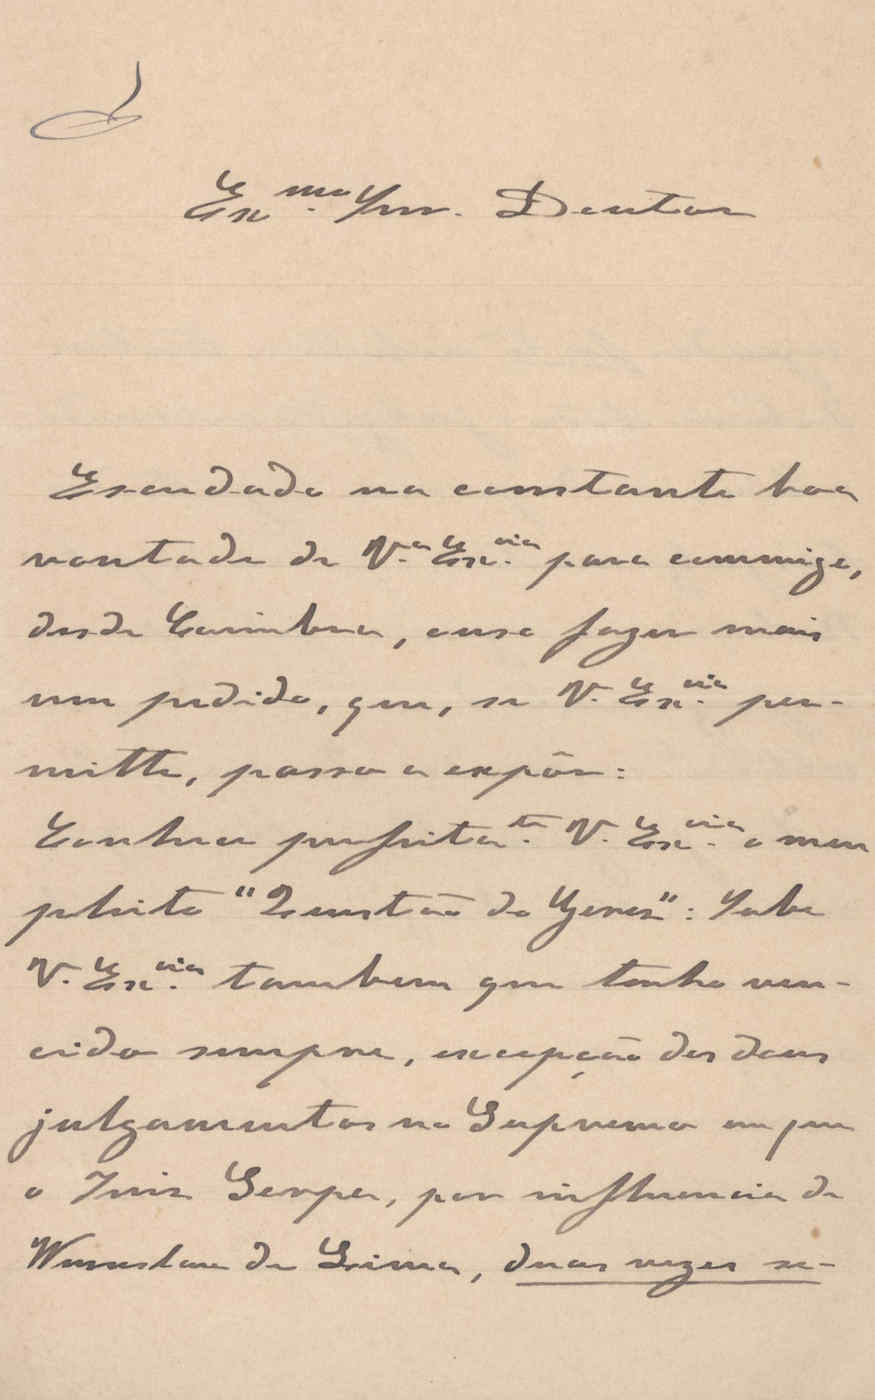 Ex.mo Snr. Doutor
Escudado na constante boa
vontade de V.a Ex.cia para commigo,
desde Coimbra, ouso fazer mais
um pedido, que, se V. Ex.cia per-
mitte, passo a expôr:
Conhece perfeita.te V. Ex.cia o meu
pleito "Questão do Gerez": Sabe
V. Ex.cia tambem que tenho ven-
cido sempre, excepção dos dous
julgamentos no Supremo em que
o Juiz Serpa, por influencia de
Wenceslau de Lima, duas vezes se-